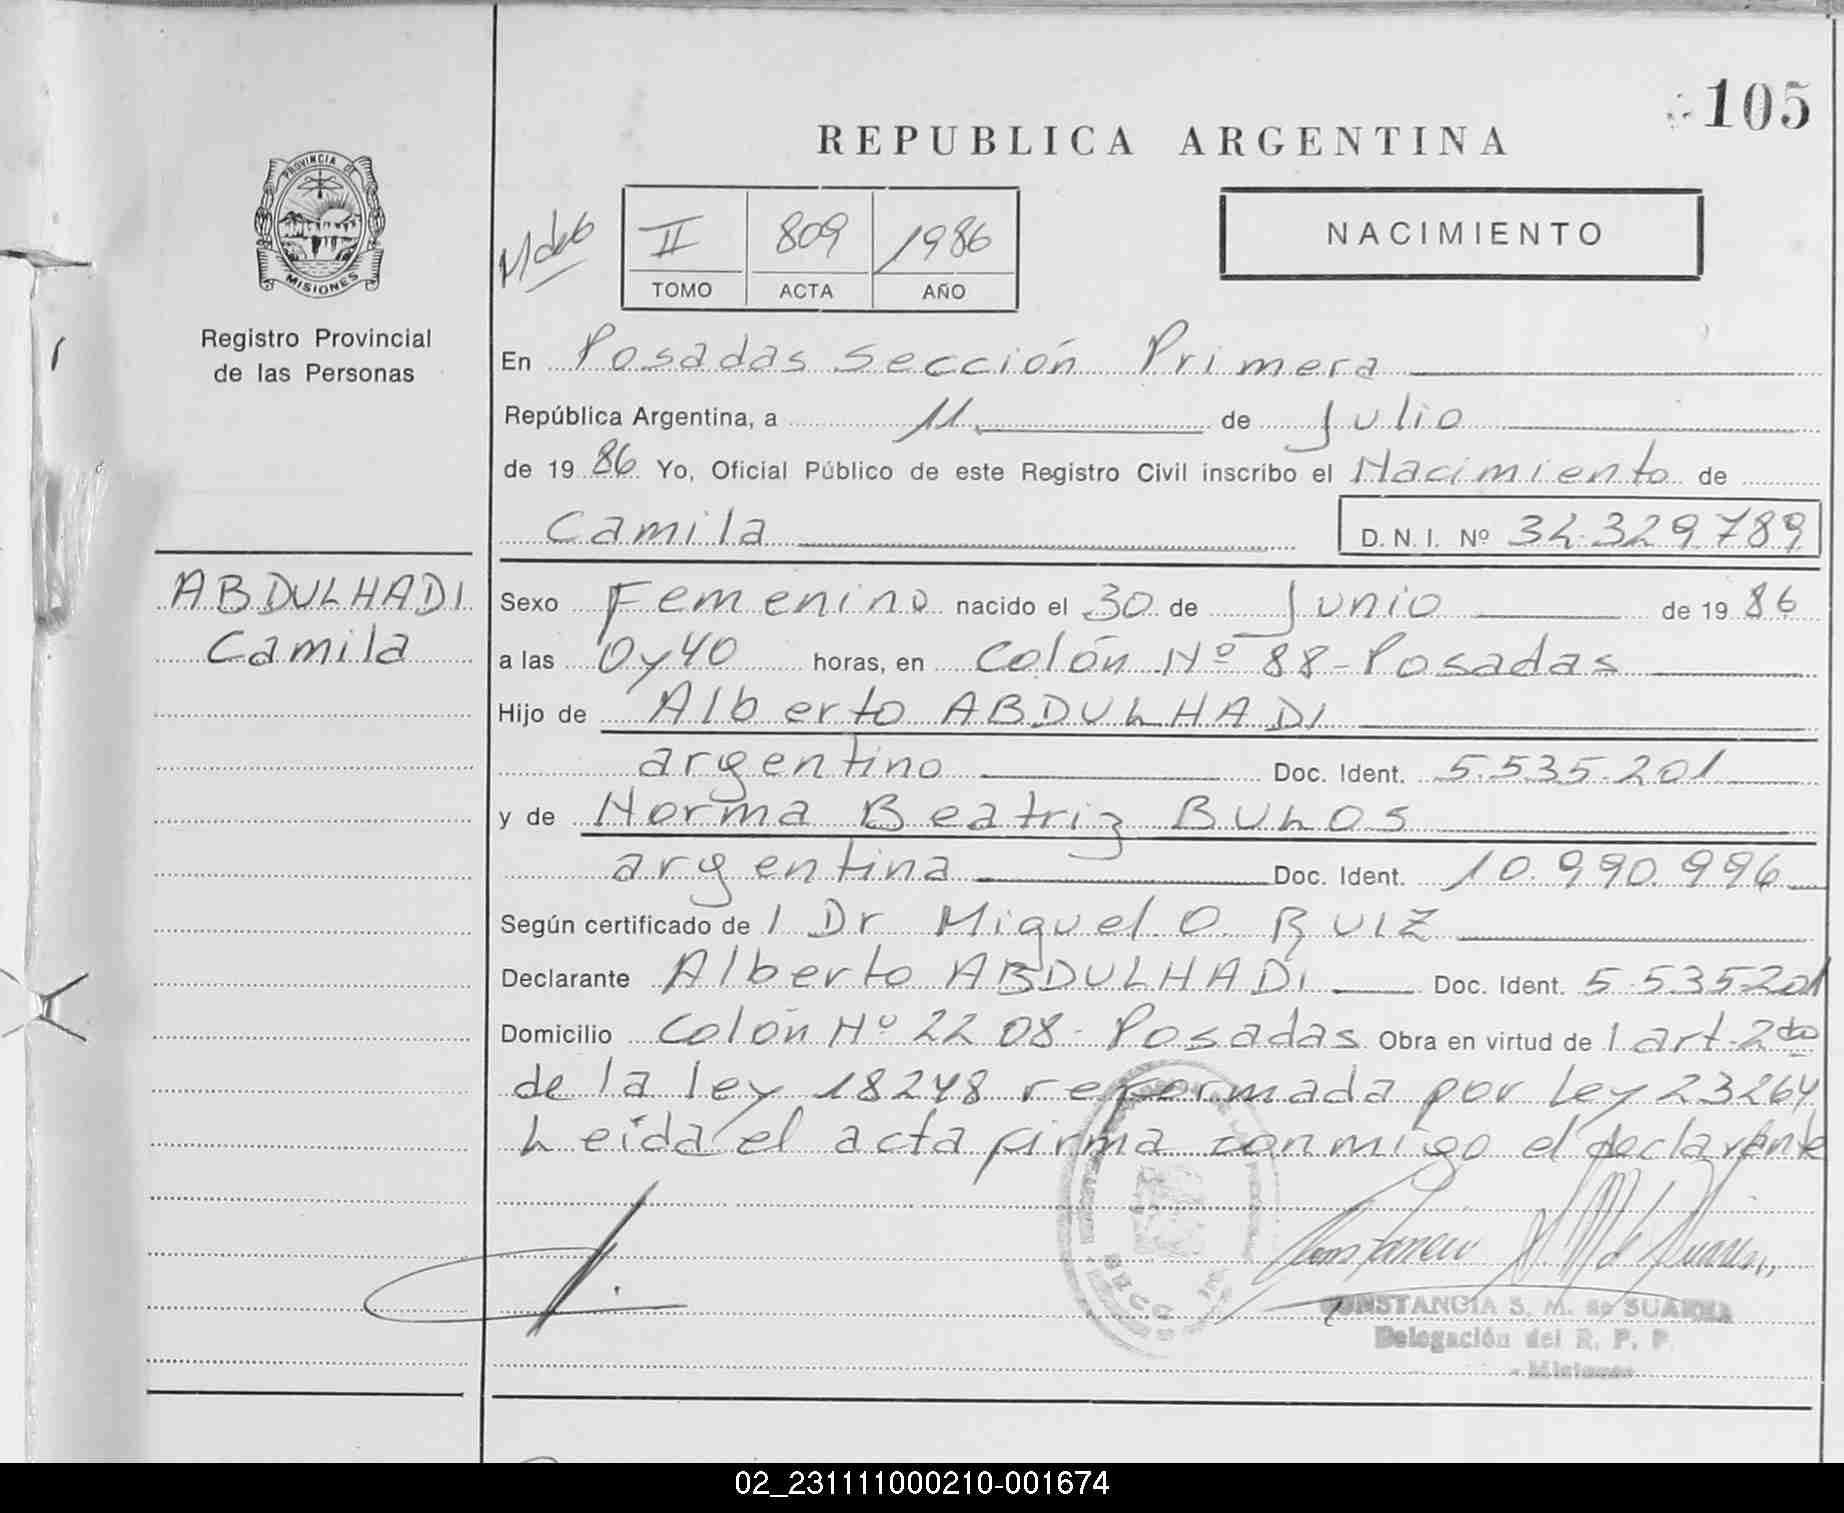 105
REPUBLICA ARGENTINA
PROVINCIA DE
MISIONES
Registro Provincial
de las Personas
II 809 1986
TOMO ACTA AÑO
NACIMIENTO
En Posadas Sección Primera
República Argentina, a 11 de Julio
de 19 86 Yo, Oficial Público de este Registro Civil inscribo el Nacimiento de
Camila D. N. I. Nº 32.329.789
ABDULHADI
Camila
Sexo Femenino nacido el 30 de Junio de 19 86
a las 0 y 40 horas, en Colón Nº 88 - Posadas
Hijo de Alberto ABDULHADI
argentino Doc. Ident. 5.535.201
y de Norma Beatriz BULOS
argentina Doc. Ident. 10.990.996
Según certificado de l Dr Miguel O. RUIZ
Declarante Alberto ABDULHADI Doc. Ident. 5.535.201
Domicilio Colón Nº 2208 - Posadas Obra en virtud de l art. 2do
de la ley 18248 reformada por Ley 23264
Leida el acta firma conmigo el declarante
CONSTANCIA S. M. de SUAREZ
Delegación del R. P. P.
- Misiones
02_231111000210-001674